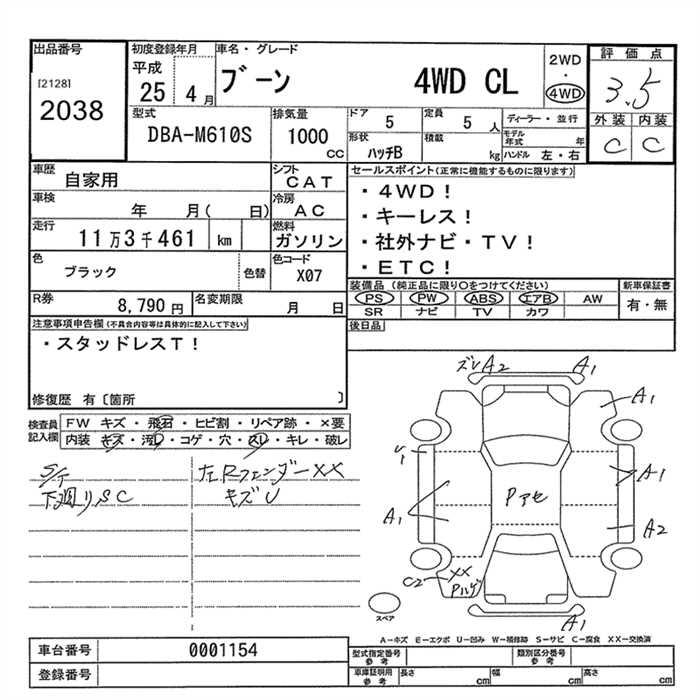 出品番号
[2128]
2038
初度登録年月
平成
25 4月
車名・グレード
ブーン 4WD CL
2WD
・
4WD
評価点
3.5
外装 内装
C C
型式
DBA-M610S
排気量
1000
CC
ドア
5
定員
5 人
形状
ハッチB
積載
kg
ディーラー・並行
モデル年式 年
ハンドル 左・右
車歴
自家用
シフト
CAT
車検
年 月( 日)
冷房
AC
走行
11万3千461 km
燃料
ガソリン
色
ブラック
色替
色コード
X07
R券
8,790 円
名変期限
月 日
セールスポイント(正常に機能するものに限ります)
・4WD!
・キーレス!
・社外ナビ・TV!
・ETC!
装備品(純正品に限り○をつけてください)
PS PW ABS エアB AW
SR ナビ TV カワ
新車保証書
有・無
後日品
注意事項申告欄(不具合内容等は具体的に記入して下さい)
・スタッドレスT!
修復歴 有〔箇所 〕
検査員
記入欄
FW キズ・飛石・ヒビ割・リペア跡・×要
内装 キズ・汚レ・コゲ・穴・スレ・キレ・破レ
S/T
下廻りSC
左Rフェンダー××
キズU
ズレA2
A1
A1
U1
A1
A1
Pアセ
A2
C2
××
Pハゲ
A1
スペア
A-キズ E-エクボ U-凹み W-補修跡 S-サビ C-腐食 XX-交換済
車台番号
0001154
登録番号
型式指定番号
参考
類別区分番号
参考
車庫証明用
参考
長さ cm
幅 cm
高さ cm